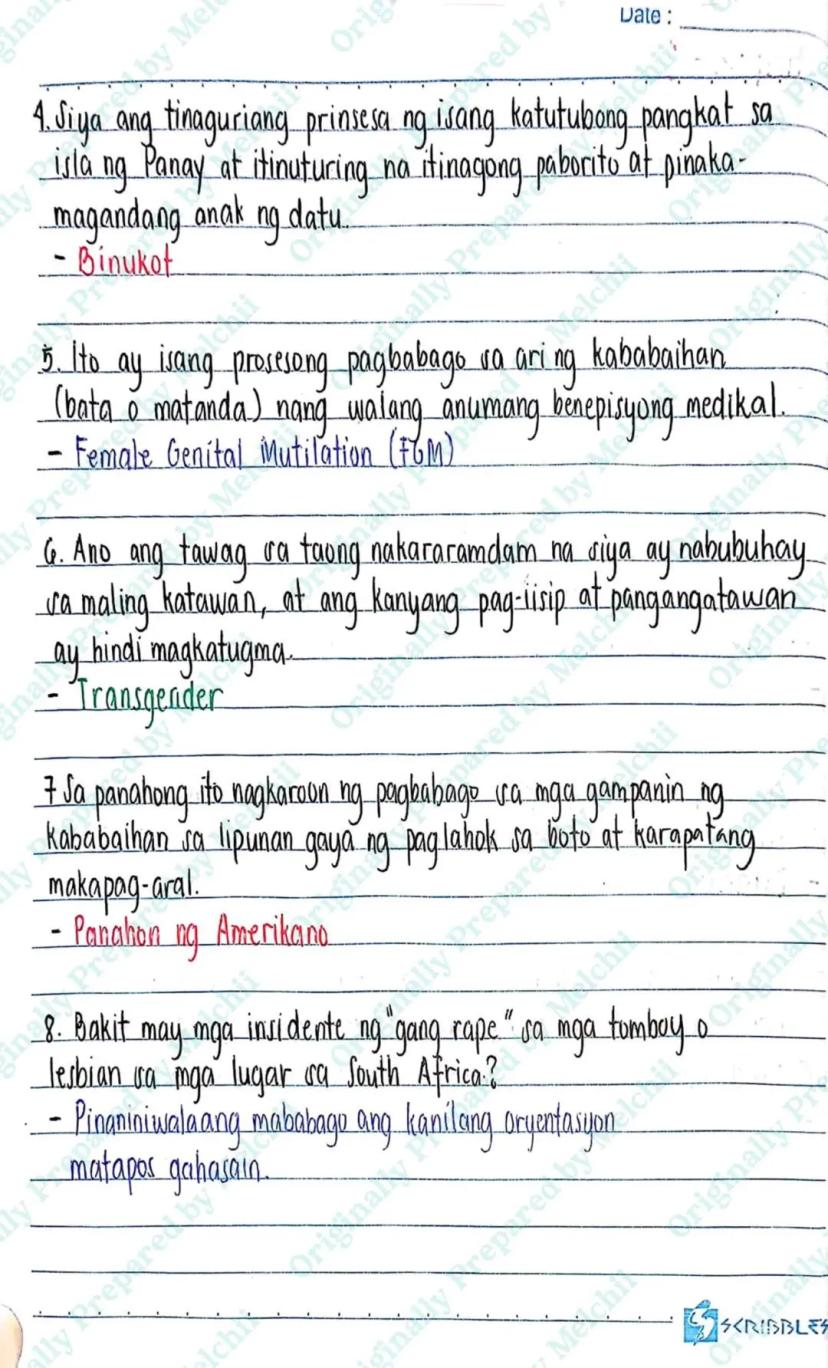 Date :
4. Siya ang tinaguriang prinsesa ng isang katutubong pangkat sa
isla ng Panay at itinuturing na itinagong paborito at pinaka-
magandang anak ng datu.
- Binukot
5. Ito ay isang prosesong pagbabago sa ari ng kababaihan
(bata o matanda) nang walang anumang benepisyong medikal.
- Female Genital Mutilation (FGM)
6. Ano ang tawag sa taong nakararamdam na siya ay nabubuhay
sa maling katawan, at ang kanyang pag-iisip at pangangatawan
ay hindi magkatugma.
- Transgender
7 Sa panahong ito nagkaroon ng pagbabago sa mga gampanin ng
kababaihan sa lipunan gaya ng paglahok sa boto at karapatang
makapag-aral.
- Panahon ng Amerikano
8. Bakit may mga insidente ng "gang rape" sa mga tomboy o
lesbian sa mga lugar sa South Africa?
- Pinaniniwalaang mababago ang kanilang oryentasyon
matapos gahasain.
SCRIBBLES
Originally Prepared by Melchii